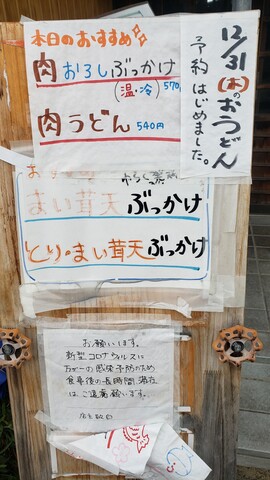 本日のおすすめ
肉おろしぶっかけ
(温・冷) 570
肉うどん 540円
12/31(木)のおうどん
予約はじめました。
まい茸天ぶっかけ
とり・まい茸天ぶっかけ
お願いします。
新型コロナウルスに
万が一の感染予防のため
食事後の長時間滞在
は、ご遠慮願います。
店主敬白